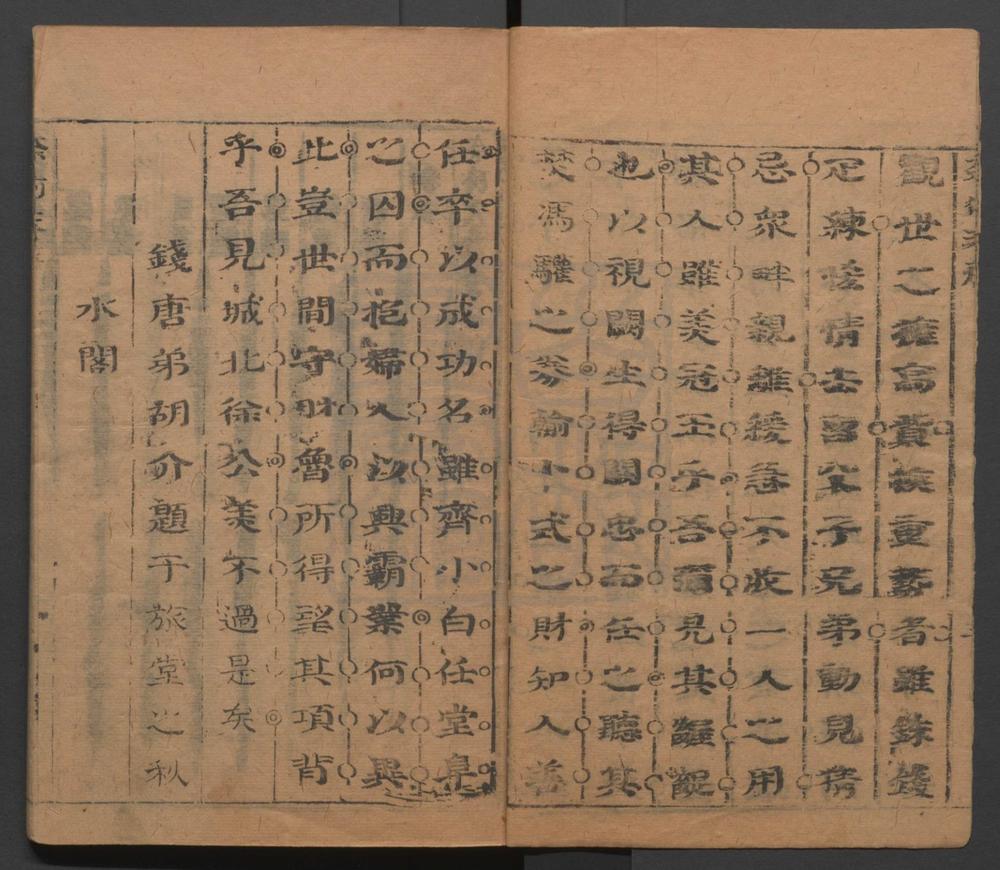 觀世之擁富貴挾重勢者雖銖錢
疋練情去子兄弟動見猜
忌眾畔親離緩急不收一人之用
其人雖美冠玉乎吾猶見其齷齪
也以視生得忠而任之聽其
焚馮驩之券輸卜式之財知人善
任卒以成功名雖齊小白任堂阜
之囚而抱婦人以興霸業何以異
此豈世間守財魯所得望其項背
乎吾見城北徐公美不過是矣
錢唐弟胡介題于旅堂之秋
水閣